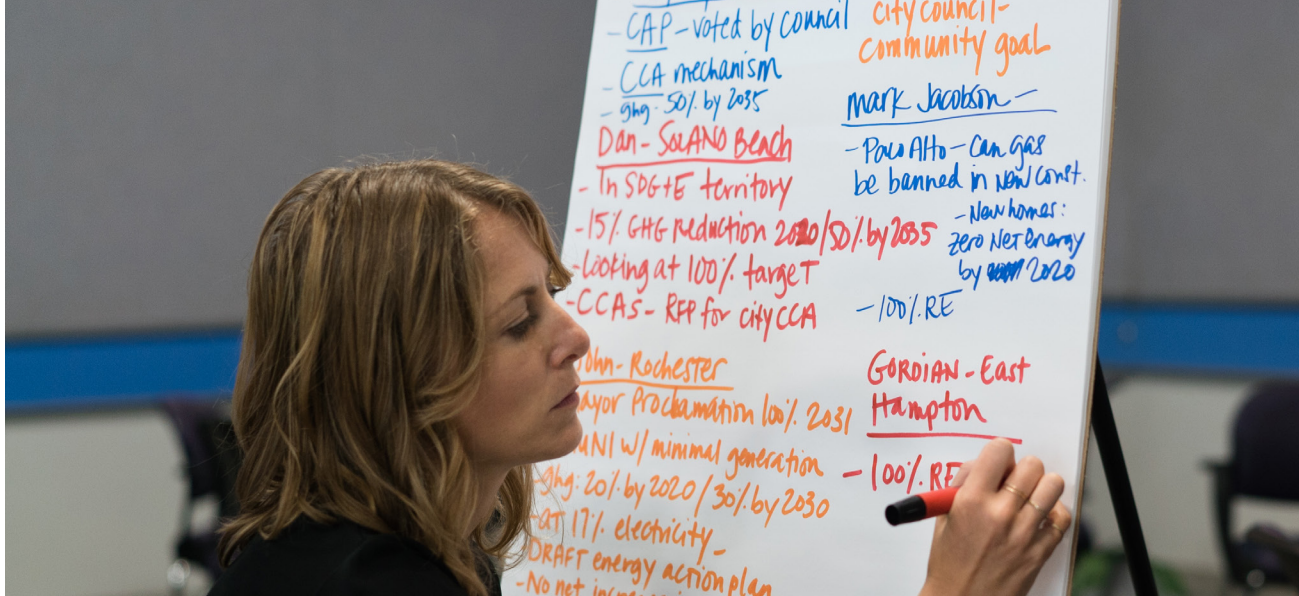 - CAP - voted by council
- CCA mechanism
- ghg: 50% by 2035
Dan - SOLANO Beach
- In SDG+E territory
- 15% GHG reduction 2020/50% by 2035
- Looking at 100% target
- CCAs - RFP for city CCA
John - Rochester
ayor Proclamation 100% 2031
UNI w/ minimal generation
- ghg: 20% by 2020 / 30% by 2030
- at 17% electricity -
DRAFT energy action plan
- No net
city council -
community goal
mark Jacobson -
- Palo Alto - Can gas
be banned in new const.
- New homes:
zero Net Energy
by 2020
- 100% RE
GORDIAN - East
Hampton
- 100% RE